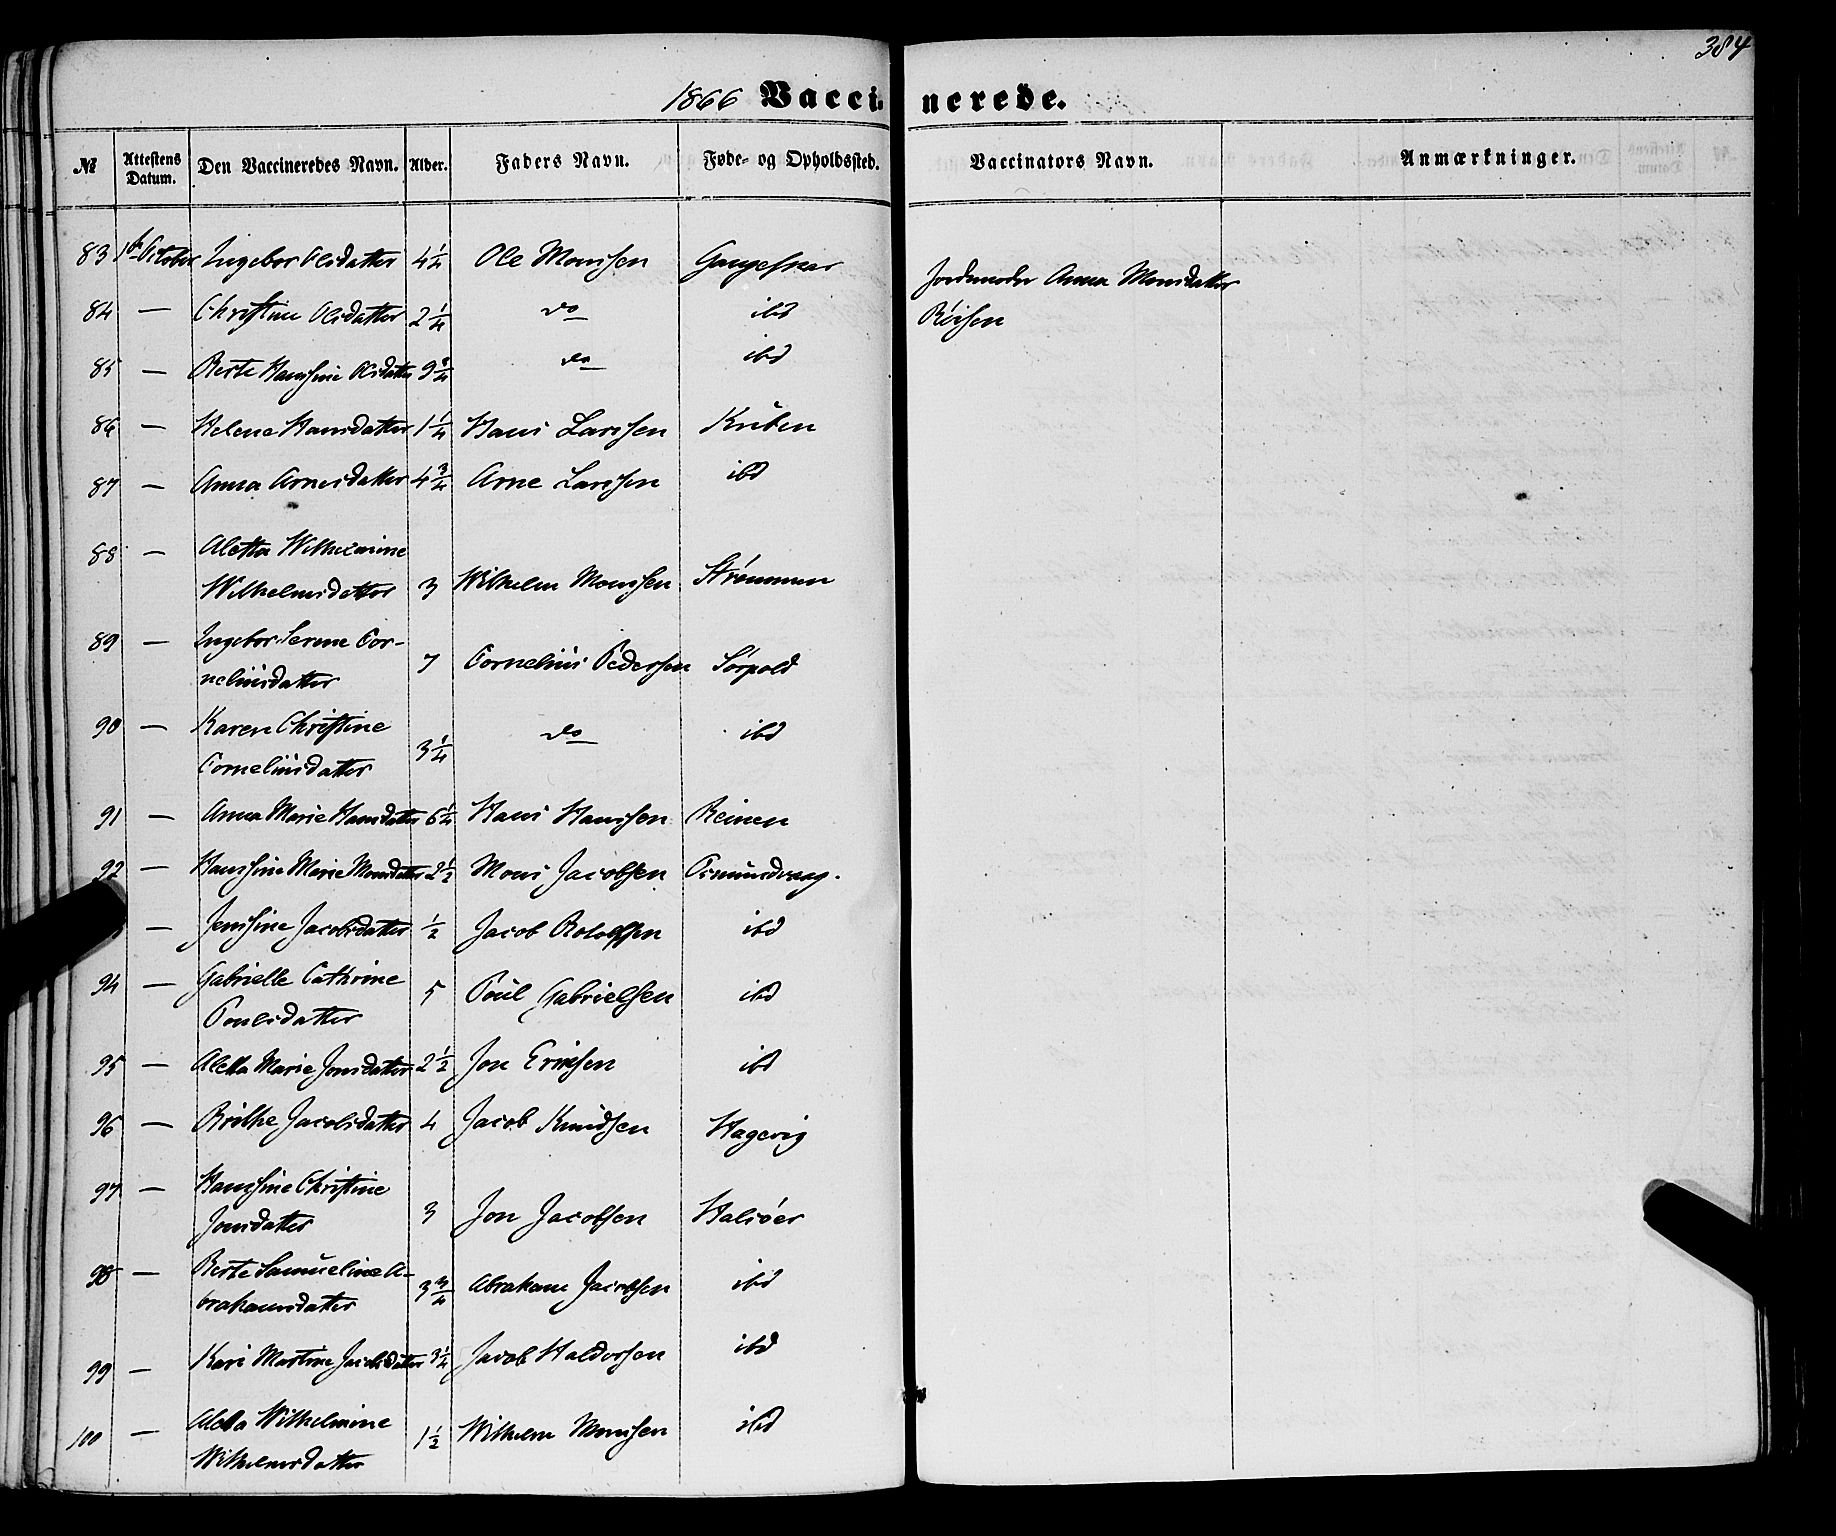 384
1866 Vaccinerede.
№ Attestens Datum. Den Vaccineredes Navn. Alder. Faders Navn. Føde- og Opholdssted. Vaccinators Navn. Anmærkninger.
83 1ste October Ingebor Olsdatter 4 1/4 Ole Monsen
Jordemoder Anna Monsdatter
84 — Christine Olsdatter 2 1/4 do ibd Röisen
85 — Berte Hansine Olsdatter 9 3/4 do ibd
86 — Helene Hansdatter 1 1/4 Hans Larssen Kuben
87 — Anna Arnesdatter 4 3/4 Arne Larssen ibd
88 — Aletta Wilhelmine
Wilhelmsdatter 3 Wilhelm Monssen Strømmen
89 — Ingebor Serene Cor-
neliusdatter 7 Cornelius Pedersen Sørpold
90 — Karen Christine
Corneliusdatter 3 1/4 do ibd
91 — Anna Marie Hansdatter 6 1/4 Hans Hanssen Reinen
92 — Hanssine Marie Monsdatter 2 1/2 Mons Jacobsen Osmundvaag.
— Jenssine Jacobsdatter 1/2 Jacob Roloffsen ibd
94 — Gabrielle Cathrine
Poulsdatter 5 Poul Gabrielsen ibd
95 — Aletta Marie Jonsdatter 2 1/2 Jon Eriksen ibd
96 — Brithe Jacobsdatter 4 Jacob Knudsen Hagevig
97 — Hanssine Christine
Jonsdatter 3 Jon Jacobsen Halsöer
98 — Berte Samueline A-
brahamsdatter 3 3/4 Abraham Jacobsen ibd
99 — Kari Martine Jacobsdatter 3 1/4 Jacob Haldorsen ibd
100 — Aletta Wilhelmine
Wilhelmsdatter 1 1/2 Wilhelm Monssen ibd